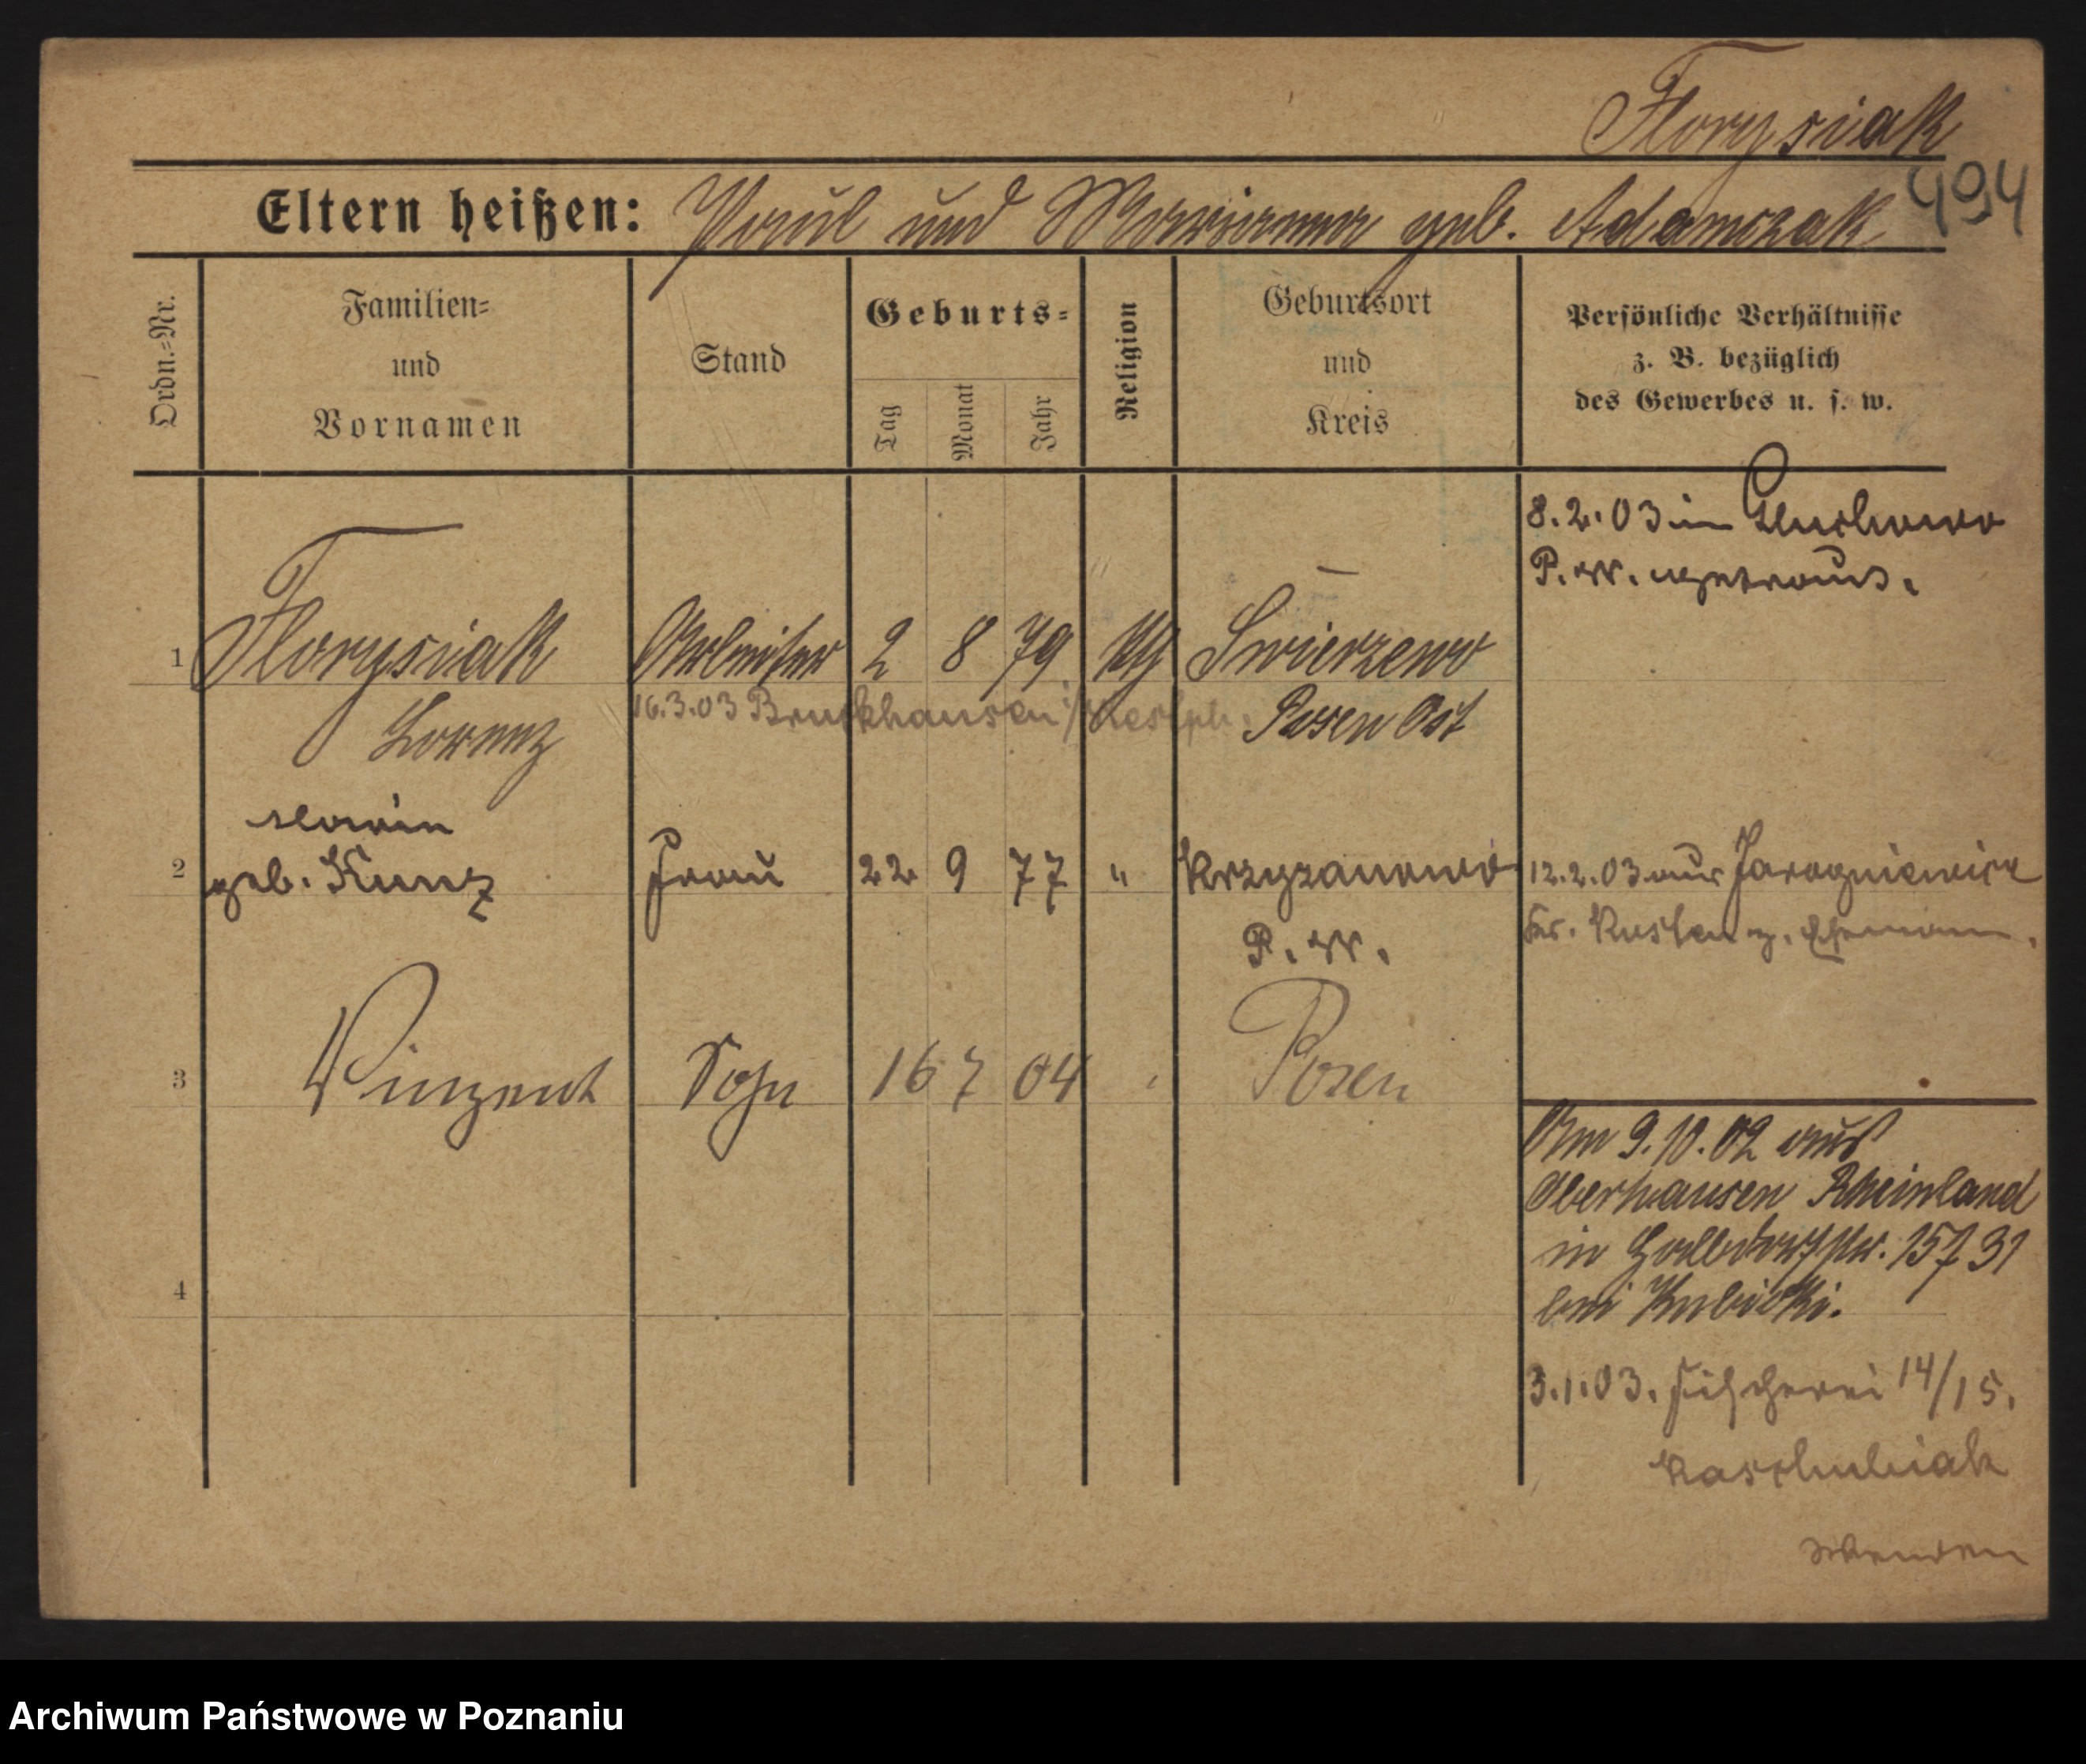 Florysiak
494
Eltern heißen: Paul und Marianna geb. Adamczak
Ordn.=Nr.
Familien=
und
Vornamen
Stand
Geburts=
Tag
Monat
Jahr
Religion
Geburtsort
und
Kreis
Persönliche Verhältnisse
z. B. bezüglich
des Gewerbes u. s. w.
8.2.03 in
P. W. getraut.
1 Florysiak Arbeiter 2 8 79 kth Swierzewo
Lorenz Posen Ost
16.3.03 Bruckhausen Westph.
2 Marie
geb. Kunz Frau 22 9 77 " Krzyzanowo
P. W.
12.2.03 aus Jarogniewice
Kr. Kosten z. Ehemann.
3 Vinzent Sohn 16 7 04 Posen
Am 9.10.02 aus
Oberhausen Rheinland
in 157 31
bei Kubicki.
4
3.1.03. Fischerei 14/15.
Kaschubiak
Wenden
Archiwum Państwowe w Poznaniu